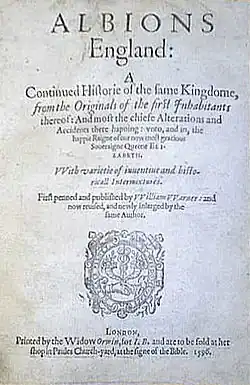 ALBIONS
England:
A
Continued Historie of the same Kingdome,
from the Originals of the first Inhabitants
thereof: And most the chiefe Alterations and
Accidents there hapning: vnto, and in, the
happie Raigne of our now most gracious
Soueraigne Queene ELI-
ZABETH.
VVith varietie of inuentiue and histo-
ricall Intermixtures.
First penned and published by VVilliam VVarner: and
now reuised, and newly inlarged by the
same Author.
LONDON,
Printed by the Widow Orwin, for I. B. and are to be sold at her
shop in Paules Church-yard, at the signe of the Bible. 1596.